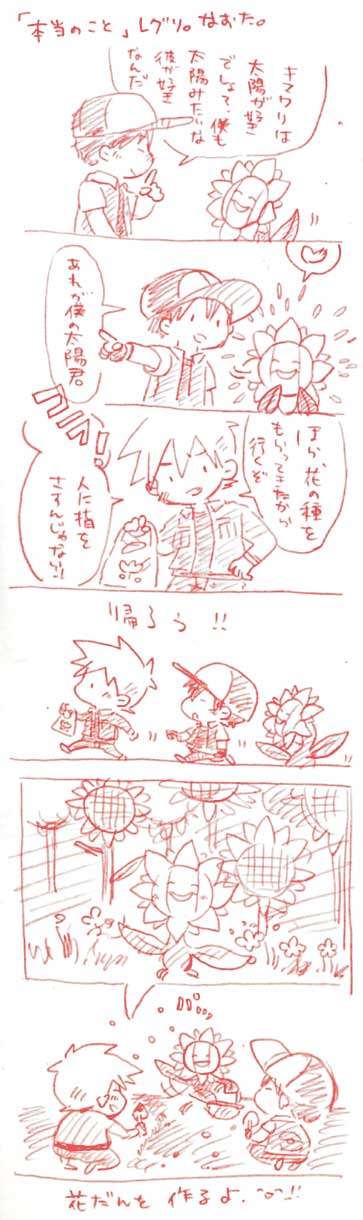 「本当のこと」レグリ。なおた。
キマワリは
太陽が好き
でしょて、僕も
太陽みたいな
彼が好き
なんだ
あれが僕の太陽君
ほら、花の種を
もらってきたから
行くぞ
コラ!
人に指を
さすんじゃない!!
帰ろう!!
パッ
花だんを 作るよ.!!